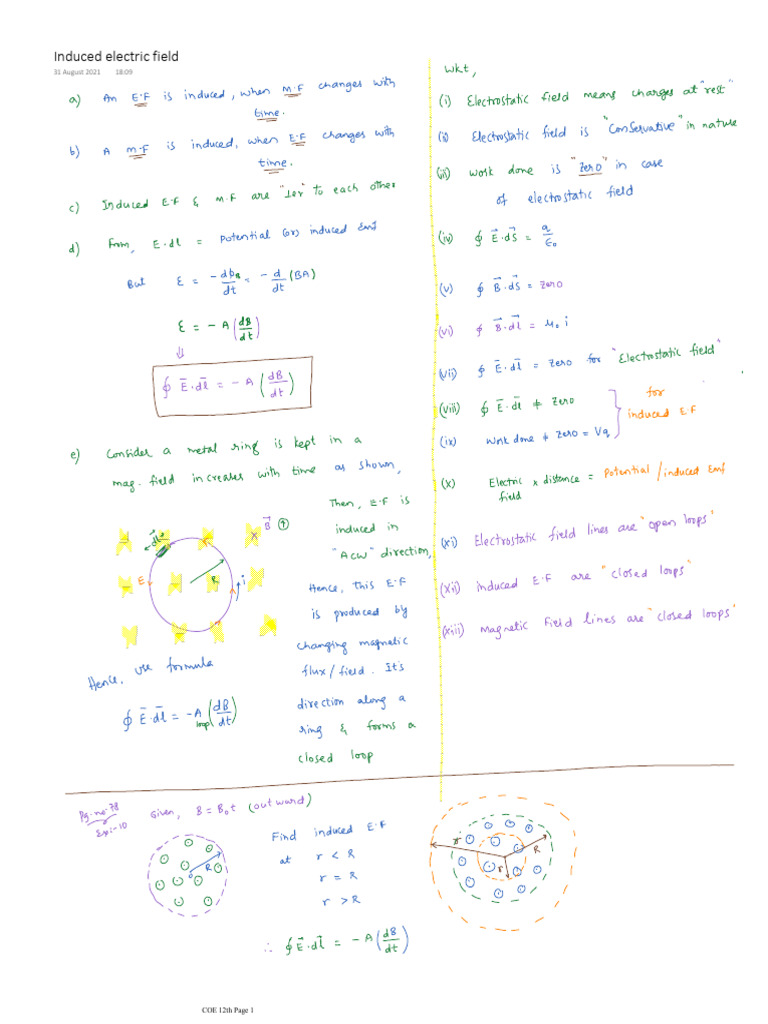 Induced electric field
31 August 2021 18:09
a) An E.F is induced, when M.F changes with
time.
b) A M.F is induced, when E.F changes with
time.
c) Induced E.F & M.F are "⊥er" to each other
d) From, E.dl = Potential (or) induced Emf
But ε = -dϕ_B/dt = -d/dt (BA)
ε = -A (dB/dt)
⇓
∮ E⃗.dl⃗ = -A (dB/dt)
e) Consider a metal ring is kept in a
mag. field increases with time as shown,
Then, E.F is
induced in
"ACW" direction,
Hence, this E.F
is produced by
changing magnetic
flux/field. It's
direction along a
ring & forms a
closed loop
dl⃗
B⃗ ↑
x
E
R
i
Hence, use formula
∮ E⃗.dl⃗ = -A_loop (dB/dt)
Wkt,
(i) Electrostatic field means charges at "rest"
(ii) Electrostatic field is "Conservative" in nature
(iii) work done is "zero" in case
of electrostatic field
(iv) ∮ E⃗.dS⃗ = q/ε₀
(v) ∮ B⃗.dS⃗ = zero
(vi) ∮ B⃗.dl⃗ = μ₀ i
(vii) ∮ E⃗.dl⃗ = zero for "Electrostatic field"
(viii) ∮ E⃗.dl⃗ ≠ zero
(ix) work done ≠ zero = Vq
for
induced E.F
(x) Electric field × distance = Potential/induced Emf
(xi) Electrostatic field lines are "open loops"
(xii) induced E.F are "closed loops"
(xiii) Magnetic field lines are "closed loops"
Pg.no-78
Exp-10
Given, B = B₀t (outward)
o R
Find induced E.F
at r < R
r = R
r > R
∴ ∮ E⃗.dl⃗ = -A (dB/dt)
r
R
r
COE 12th Page 1